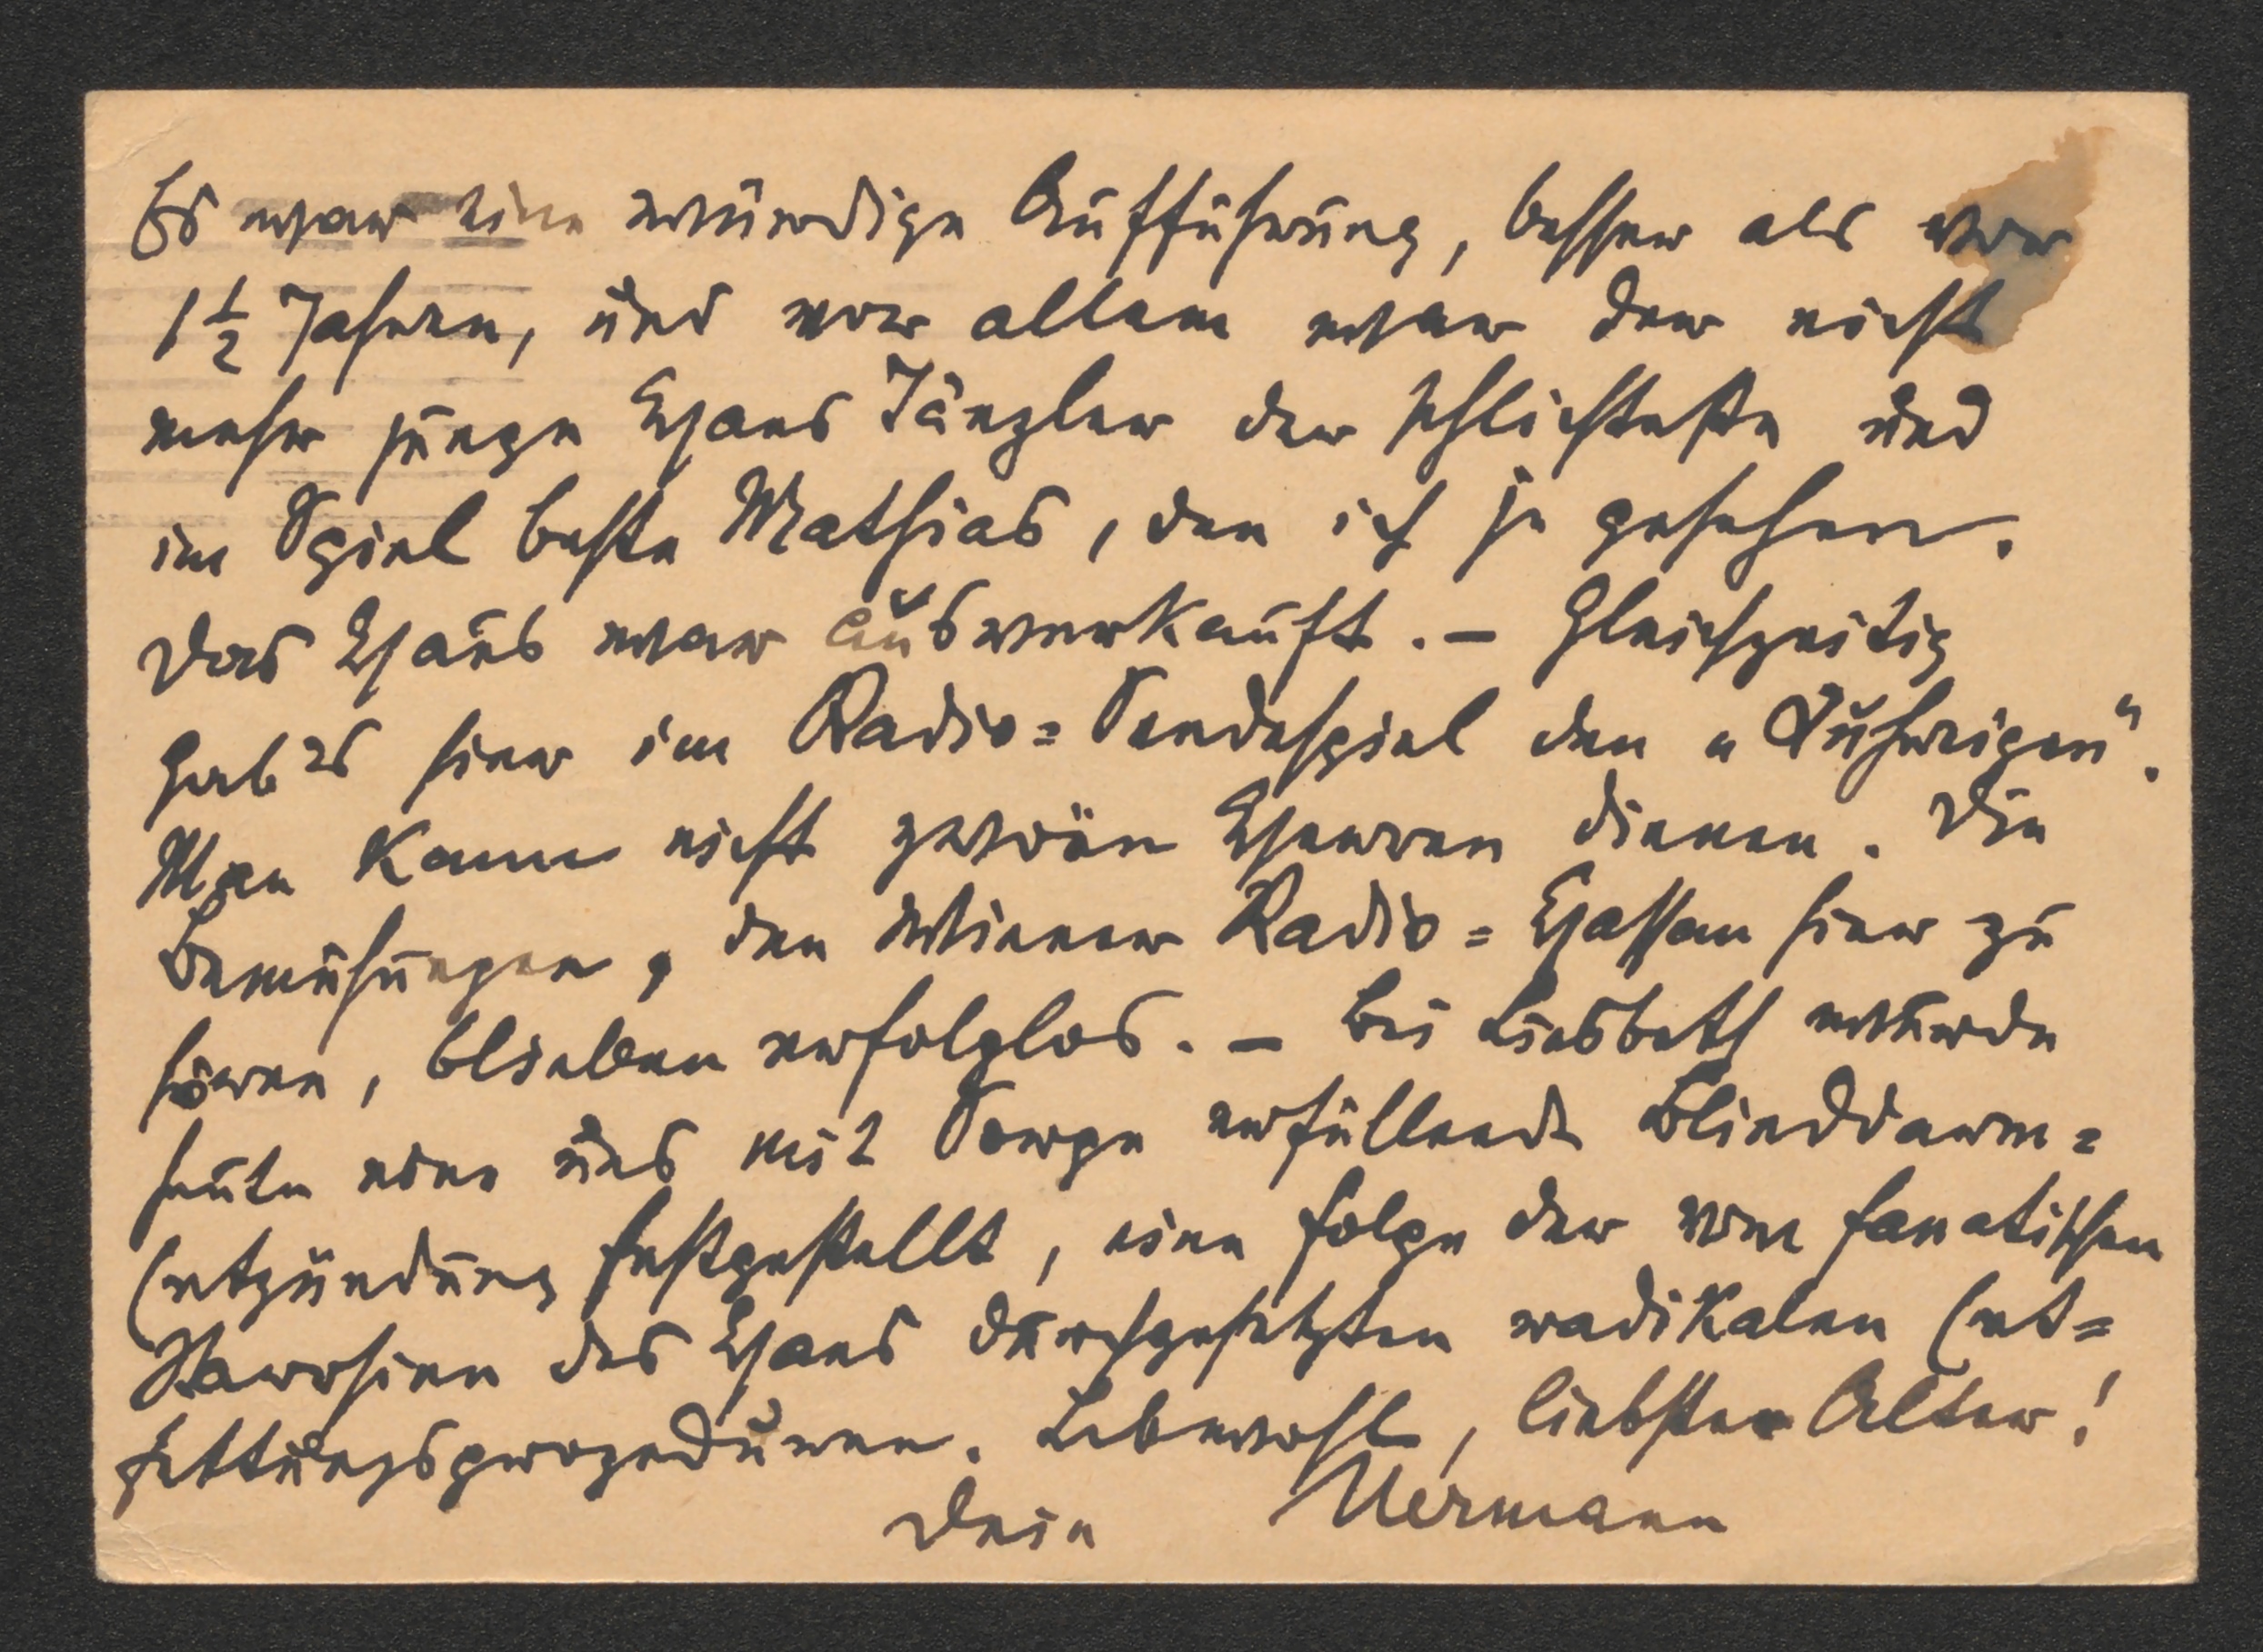 Es war eine würdige Aufführung, besser als vor
1½ Jahren, und vor allem war der nicht
mehr junge Hans Tänzler der schlichteste und
im Spiel beste Mathias, den ich je gesehen.
Das Haus war ausverkauft. – Gleichzeitig
gab es hier im Radio=Sendespiel den „Kuhreigen“.
Man kann nicht zwoën Herren dienen. Die
Bemühungen, den Wiener Radio=Hassan hier zu
hören, blieben erfolglos. – Bei Liesbeth wurde
heute eine uns mit Sorge erfüllende Blinddarm=
Entzündung festgestellt, eine Folge der vom fanatischen
Heroïsmus des Hans durchgesetzten radikalen Ent=
fettungsprozeduren. Lebewohl, liebster Alter!
Dein Hermann